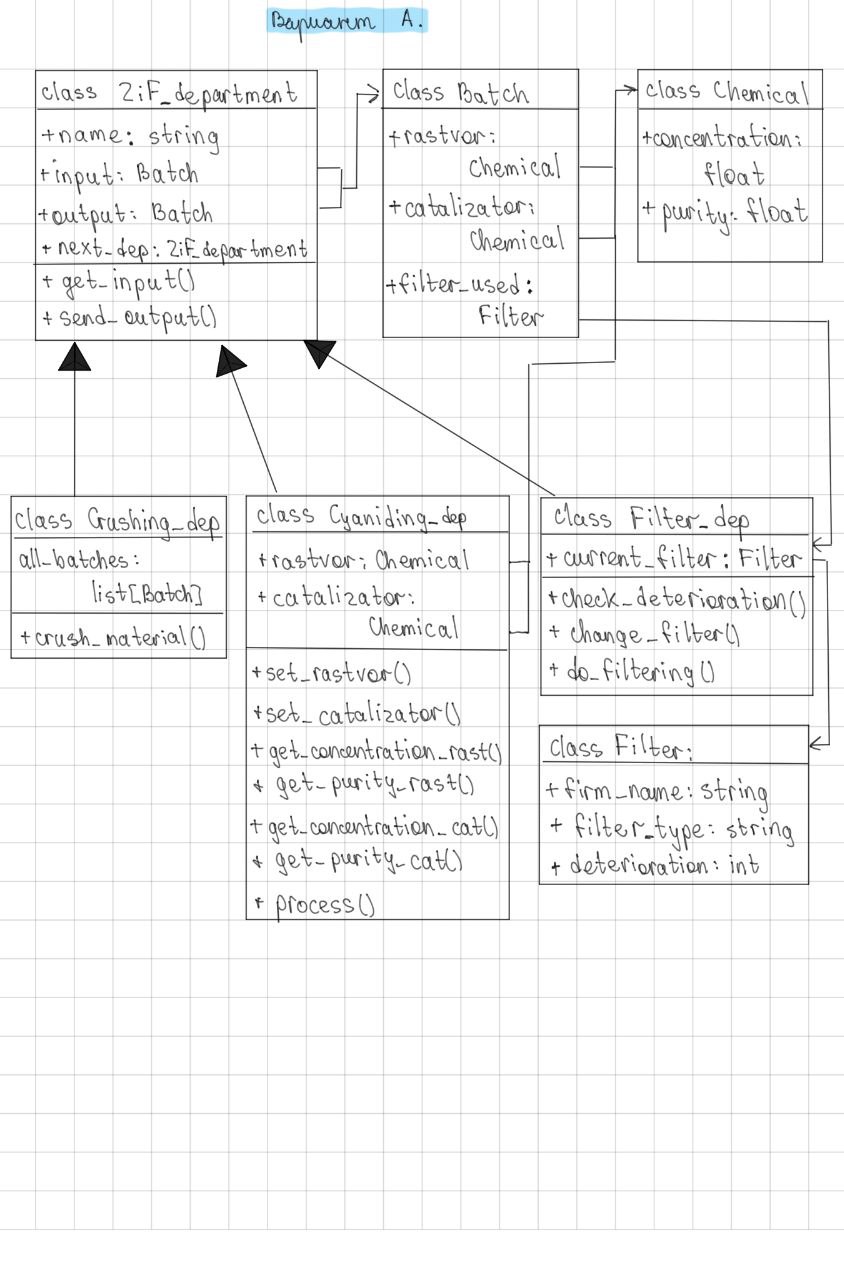 Вариант А.
class ZiF_department
+name: string
+input: Batch
+output: Batch
+ next_dep: ZiF_department
+ get_input()
+ send_output()
class Batch
+rastvor:
Chemical
+catalizator:
Chemical
+filter_used:
Filter
class Chemical
+concentration:
float
+ purity: float
class Crushing_dep
all_batches:
list[Batch]
+crush_material()
class Cyaniding_dep
+rastvor: Chemical
+ catalizator:
Chemical
+set_rastvor()
+set_catalizator()
+ get_concentration_rast()
+ get_purity_rast()
+ get_concentration_cat()
+ get_purity_cat()
+ process()
class Filter_dep
+ current_filter: Filter
+check_deterioration()
+ change_filter()
+ do_filtering()
class Filter:
+ firm_name: string
+ filter_type: string
+ deterioration: int